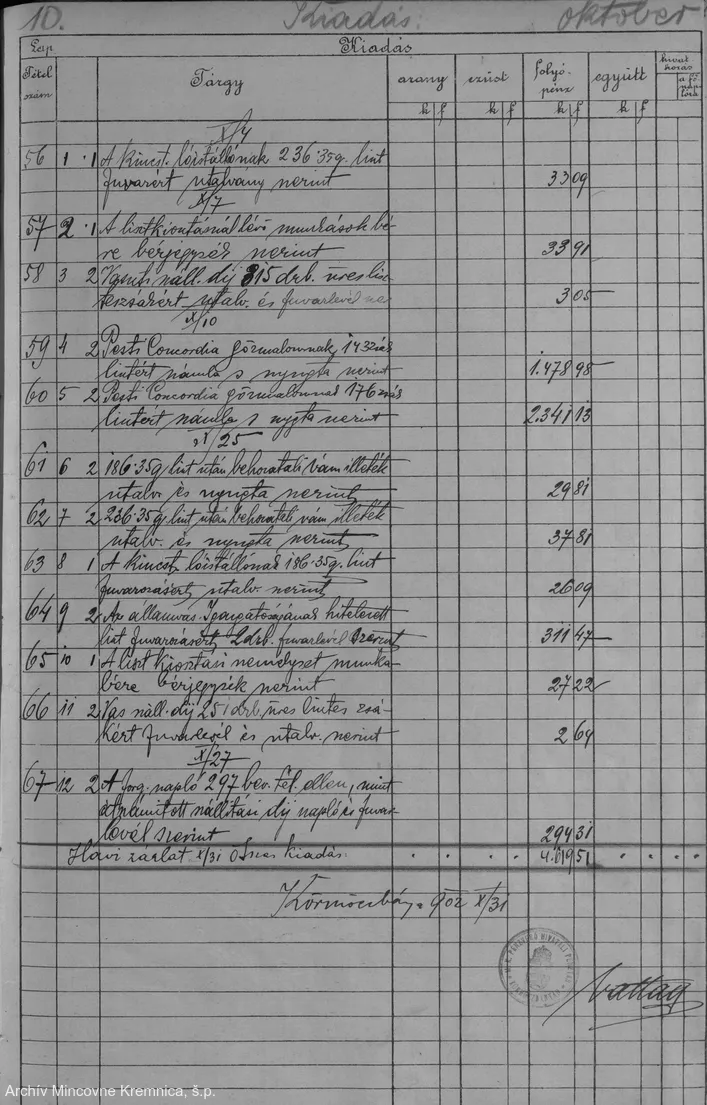 10. Kiadás: október
Lap Kiadás
Tétel szám Tárgy arany ezüst folyó-pénz együtt hivat kozás a fő naplóra
k f k f k f k f
X/4
56 1 1 A kincst. lóistállónak 236·35q. liszt
fuvarért utalvány szerint 33 09
X/7
57 2 1 A lisztkiosztásnál lévő munkások bé-
re bérjegyzék szerint 33 91
58 3 2 száll. díj 315 drb. üres lisz-
teszsákért utalv. és fuvarlevél sze 3 05
X/10
59 4 2 Pesti Concordia gőzmalomnak, 143 zsák
lisztért számla s nyugta szerint 1.478 98
60 5 2 Pesti Concordia gőzmalomnak 176 zsák
lisztért számla s nygta szerint 2.341 13
X/25
61 6 2 186·35q liszt után behozatali vám illeték
utalv. és nyugta szerint 29 81
62 7 2 236·35q. liszt után behozatali vám illeték
utalv. és nyugta szerint 37 81
63 8 1 A Kincst. lóistállónak 186·35q. liszt
fuvarozásért, utalv. szerint 26 09
64 9 2 Az államvas. Igazgatóságának hitelezett
liszt fuvarozásért, 2 drb. fuvarlevél szerint 311 47
65 10 1 A liszt kiosztási személyzet munka-
bére bérjegyzék szerint 27 22
66 11 2 Vas száll. díj 251 drb. üres lisztes zsá-
kért fuvarlevél és utalv. szerint 2 64
X/27
67 12 2 A forg. napló 297 bev. tét. ellen, mint
átszámított szállitási díj napló és fuvar-
levél szerint 294 31
Havi zárlat X/31 Összes kiadás . . . . . . 4.619 51 . . . .
Körmöczbánya 902 X/31
Archív Mincovne Kremnica, š.p.